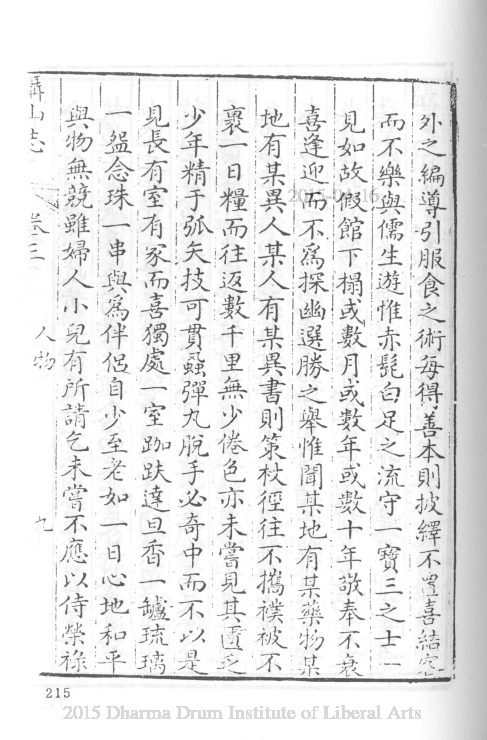 外之編導引服食之術每得善本則披繹不置喜結客
而不樂與儒生遊惟赤髭白足之流守一寶三之士一
見如故假館下榻或數月或數年或數十年敬奉不衰
喜逢迎而不爲探幽選勝之舉惟聞某地有某藥物某
地有某異人某人有某異書則策杖徑往不攜襆被不
裹一日糧而往返數千里無少倦色亦未嘗見其匱乏
少年精于弧矢技可貫蝨彈丸脫手必奇中而不以是
見長有室有家而喜獨處一室跏趺達旦香一鑪琉璃
一盌念珠一串與爲伴侶自少至老如一日心地和平
與物無競雖婦人小兒有所請乞未嘗不應以侍榮祿
山志 卷三 人物 九
215
2015-04-16
2015 Dharma Drum Institute of Liberal Arts